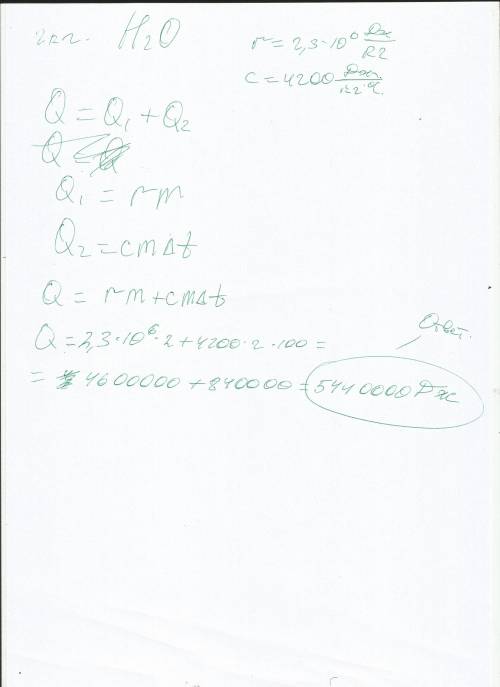 2кг. H₂O
r = 2,3·10⁶ Дж/кг
c = 4200 Дж/кг·°C
Q = Q₁ + Q₂
Q₁ = rm
Q₂ = cmΔt
Q = rm + cmΔt
Ответ.
Q = 2,3·10⁶·2 + 4200·2·100 =
= 4600000 + 840000 = 5440000 Дж